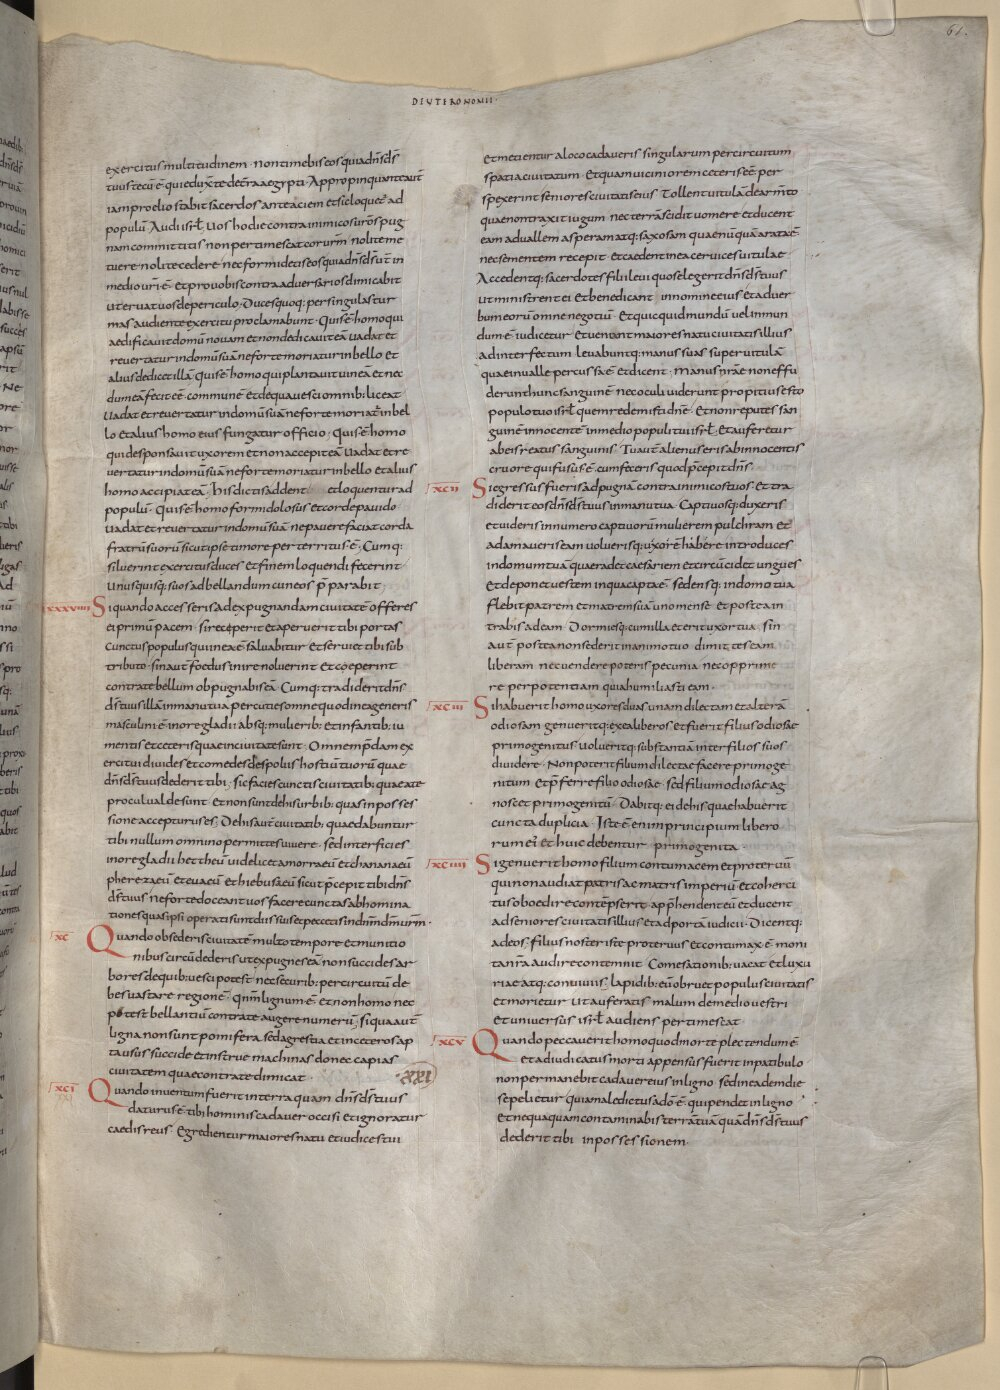 61.
DEUTERONOMII
exercitus multitudinem · non timebis eos quia dn̄s d̄s
tuus tecū ē qui eduxit te de t̄ra aegypti · Appropinquante aūt
iam proelio stabit sacerdos ante aciem et sic loquet̄ ad
populū · Audi isrl̄ · Uos hodie contra inimicos ur̄os pug
nam committitis non pertimescat cor ur̄m · nolite me
tuere nolite cedere · nec formidetis eos quia dn̄s d̄s ur̄ in
medio uri ē · Et pro uobis contra aduersarios dimicabit
ut eruat uos de periculo · Duces quoq: per singulas tur
mas audiente exercitu proclamabunt · Quis ē homo qui
aedificauit domū nouam et non dedicauit eā uadat et
reuertatur in domū suā ne forte moriatur in bello et
alius dedicet illā · Quis ē homo qui plantauit uineā et nec
dum eā fecit eē commune et de qua uesci omnib: liceat
uadat et reuertatur in domū suā ne forte moriat̄ in bel
lo et alius homo eius fungatur officio · Quis ē homo
qui desponsauit uxorem et non accepit eā uadat et re
uertatur in domū suā ne forte moriatur in bello et alius
homo accipiat eā · his dictis addent et loquentur ad
populū · Quis ē homo formidolosus et corde pauido
uadat et reuertatur in domū suā ne pauere faciat corda
fratrū suorū sicut ipse timore perterritus ē · Cumq:
siluerint exercitus duces et finem loquendi fecerint
unusquisq: suos ad bellandum cuneos p̄parabit ·
LXXXVIIII Siquando accesseris ad expugnandam ciuitatē offeres
ei primū pacem · si receperit et aperuerit tibi portas
cunctus populus qui in ea ē saluabitur et seruiet tibi sub
tributo · sin aut foedus inire noluerint et coeperint
contra te bellum obpugnabis eā · Cumq: tradiderit dn̄s
d̄s tuus illā in manu tua percuties omne quod in ea generis
masculini ē in ore gladii absq: mulierib: et infantib: iu
mentis et ceteris quae in ciuitate sunt · Omnem p̄dam ex
ercitui diuides et comedes de spoliis hostiū tuorū quae
dn̄s d̄s tuus dederit tibi · sic facies cunctis ciuitatib: quae a te
procul ualde sunt · Et non sunt de his urbib: quas in posses
sione accepturus es · De his aut ciuitatib: quae dabuntur
tibi nullum omnino permittes uiuere · sed interficies
in ore gladii hettheū uidelicet amorraeū et chananaeū
pherezaeū et euaeū et hiebusaeū sicut p̄cepit tibi dn̄s
d̄s tuus ne forte doceant uos facere cunctas abhomina
tiones quas ipsi operati sunt diis suis et peccetis in dn̄m dm̄ ur̄m ·
XC Quando obsederis ciuitatē multo tempore et munitio
nibus circūdederis ut expugnes eā non succides ar
bores de quib: uesci potest · nec securib: per circuitū de
bes uastare regionē · Qnm̄ lignum ē · et non homo nec
potest bellantiū contra te augere numerū · siqua aūt
ligna non sunt pomifera sed agrestia et in ceteros ap
ta usus succide et instrue machinas donec capias
ciuitatem quae contra te dimicat · XXI
XCI Quando inuentum fuerit in terra quam dn̄s d̄s tuus
daturus ē tibi hominis cadauer occisi et ignoratur
caedis reus · Egredientur maiores natu et iudices tui
et metientur a loco cadaueris singularum per circuitum
spatia ciuitatum · Et quam uiciniorem ceteris eē per
spexerint seniores ciuitatis eius · Tollent uitulā de arm̄to
quae non traxit iugum nec terrā scidit uomere et ducent
eam ad uallem asperam atq: saxosam quae nūquā arata ē
nec sementem recepit et caedent in ea ceruices uitulae ·
Accedentq: sacerdotes filii leui quos elegerit dn̄s d̄s tuus
ut ministrent ei et benedicant in nomine eius et ad uer
bum eorū omne negotiū · Et quicquid mundū uel inmun
dum ē iudicetur · Et uenient maiores natu ciuitatis illius
ad interfectum · leuabuntq: manus suas super uitulā
quae in ualle percussa ē et dicent · Manus nr̄ae non effu
derunt hunc sanguinē nec oculi uiderunt propitius esto
populo tuo isrl̄ quem redemisti dn̄e · Et non reputes san
guinē innocentē in medio populi tui isrl̄ · Et auferetur
ab eis reatus sanguinis · Tu aūt alienus eris ab innocentis
cruore qui fusus ē cum feceris quod p̄cepit dn̄s ·
XCII Si egressus fueris ad pugnā contra inimicos tuos · Et tra
diderit eos dn̄s d̄s tuus in manu tua · Captiuosq: duxeris
et uideris in numero captiuorū mulierem pulchram et
adamaueris eam uoluerisq: uxorē habere introduces
in domum tuā quae radet caesariem et circūcidet ungues
et deponet uestem in qua capta ē · sedensq: in domo tua
flebit patrem et matrem suā uno mense · Et postea in
trabis ad eam · Dormiesq: cum illa et erit uxor tua · sin
aut̄ postea non sederit in animo tuo dimittes eam
liberam nec uendere poteris pecunia nec opprime
re per potentiam quia humiliasti eam ·
XCIII Si habuerit homo uxores duas unam dilectam et alterā
odiosam genueritq: ex ea liberos et fuerit filius odiosae
primogenitus uolueritq: substantiā inter filios suos
diuidere · Non poterit filium dilectae facere primoge
nitum · Et p̄ferre filio odiosae · sed filium odiosae ag
noscet primogenitū · Dabitq: ei de his quae habuerit
cuncta duplicia · Iste ē enim principium libero
rum ei et huic debentur primogenita ·
XCIIII Si genuerit homo filium contumacem et proteruū
qui non audiat patris ac matris imperiū et coherci
tus oboedire contēpserit · apprehendent eū et ducent
ad seniores ciuitatis illius et ad portā iudicii · Dicentq:
ad eos · filius noster iste proteruus et contumax ē · moni
ta nr̄a audire contemnit · Comesationib: uacat et luxu
riae atq: conuiuiis · lapidib: eū obruet populus ciuitatis
et morietur · ut auferatis malum de medio uestri
et uniuersus isrl̄ audiens pertimescat
XCV Quando peccauerit homo quod morte plectendum ē
et adiudicatus morti appensus fuerit in patibulo
non permanebit cadauer eius in ligno sed in eadem die
sepelietur · quia maledictus a dō ē · qui pendet in ligno
et nequaquam contaminabis terrā tuā quā dn̄s d̄s tuus
dederit tibi in possessionem ·